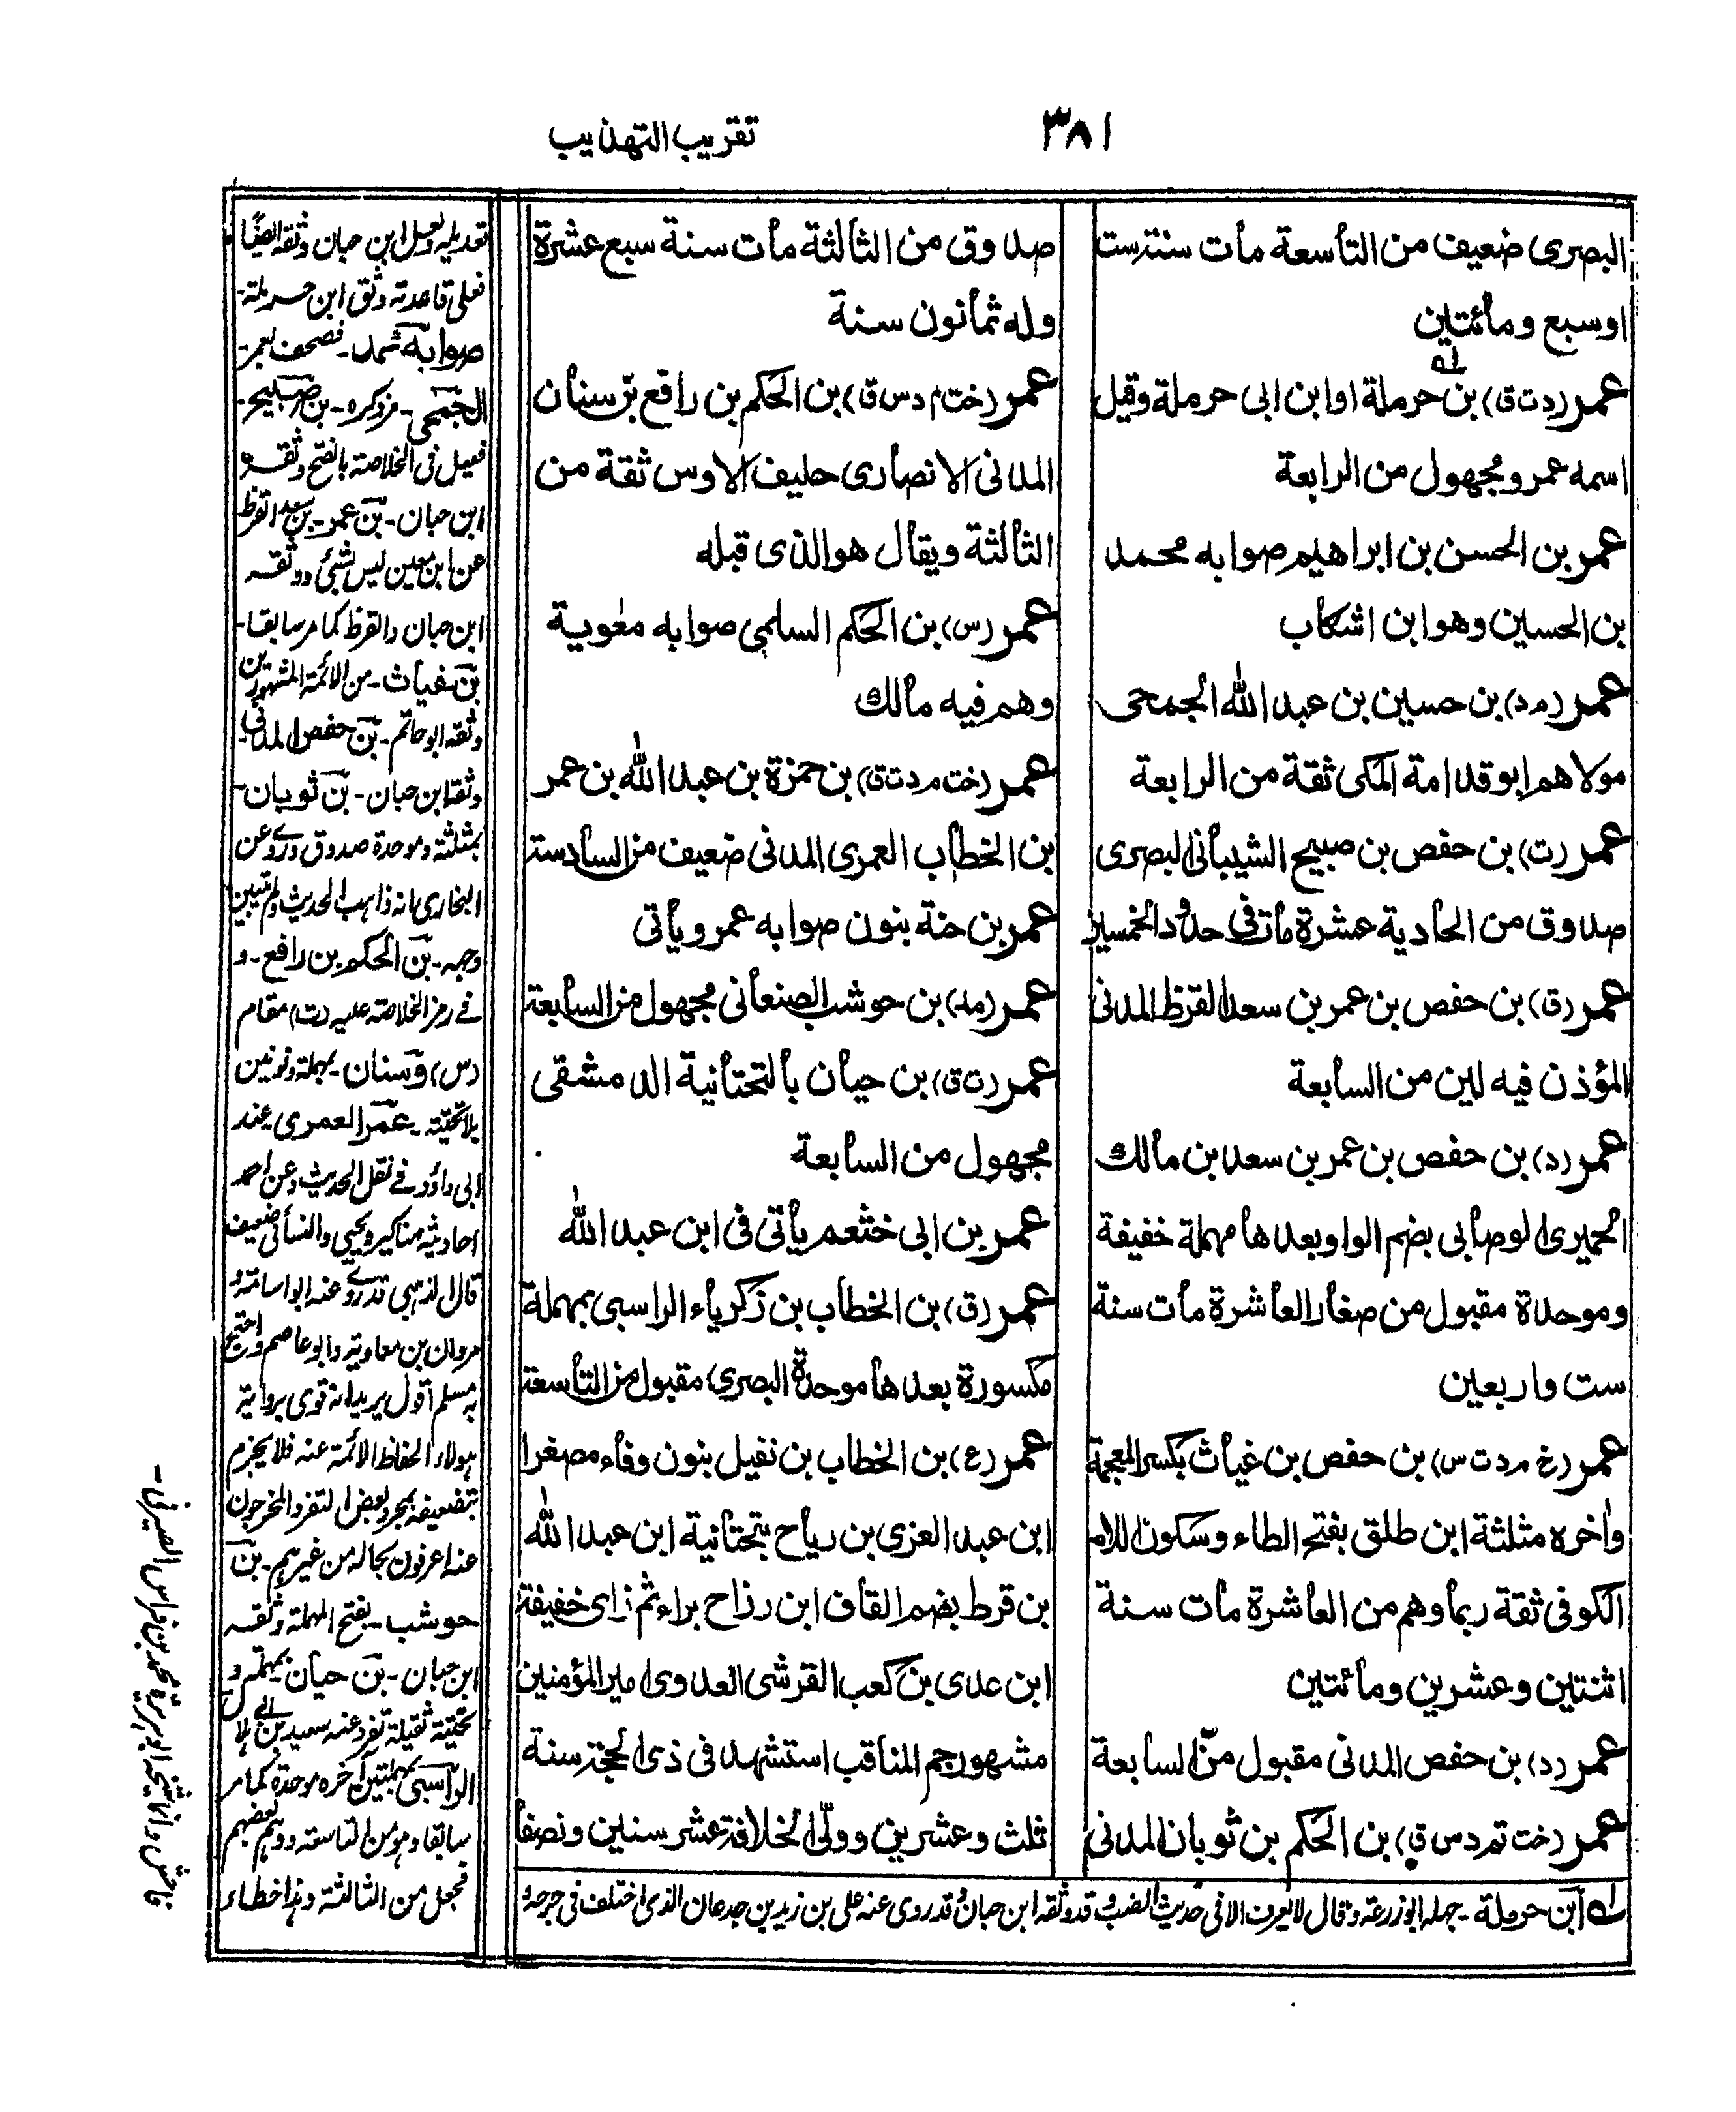 ٣٨١
تقريب التهذيب
البصرى ضعيف من التاسعة مات سنة ست
او سبع ومائتين
عمر (د ت ق) بن حرملة او ابن ابى حرملة وقيل
اسمه عمرو مجهول من الرابعة
عمر بن الحسن بن ابراهيم صوابه محمد
بن الحسين وهو ابن اشكاب
عمر (م د) بن حسين بن عبد الله الجمحى
مولاهم ابو قدامة المكى ثقة من الرابعة
عمر (ت) بن حفص بن صبيح الشيبانى البصرى
صدوق من الحادية عشرة مات فى حدود الخمسين
عمر (ق) بن حفص بن عمر بن سعد القرظ المدنى
المؤذن فيه لين من السابعة
عمر (د) بن حفص بن عمر بن سعد بن مالك
الحميرى الوصابى بضم الواو بعدها مهملة خفيفة
وموحدة مقبول من صغار العاشرة مات سنة
ست واربعين
عمر (خ م د ت س) بن حفص بن غياث بكسر المعجمة
واٰخره مثلثة ابن طلق بفتح الطاء وسكون اللام
الكوفى ثقة ربما وهم من العاشرة مات سنة
اثنتين وعشرين ومائتين
عمر (د) بن حفص المدنى مقبول من السابعة
عمر (خت تم د س ق) بن الحكم بن ثوبان المدنى
صدوق من الثالثة مات سنة سبع عشرة
وله ثمانون سنة
عمر (خت م د س ق) بن الحكم بن رافع بن سنان
المدنى الانصارى حليف الاوس ثقة من
الثالثة ويقال هو الذى قبله
عمر (س) بن الحكم السلمى صوابه معٰوية
وهم فيه مالك
عمر (خت م د ت ق) بن حمزة بن عبد الله بن عمر
بن الخطاب العمرى المدنى ضعيف من السادسة
عمر بن حنة بنون صوابه عمرو يأتى
عمر (مد) بن حوشب الصنعانى مجهول من السابعة
عمر (ت ق) بن حيان بالتحتانية الدمشقى
مجهول من السابعة
عمر بن ابى خثعم يأتى فى ابن عبد الله
عمر (ق) بن الخطاب بن زكرياء الراسبى بمهملة
مكسورة بعدها موحدة البصرى مقبول من التاسعة
عمر (ع) بن الخطاب بن نفيل بنون وفاء مصغرا
ابن عبد العزى بن رياح بتحتانية ابن عبد الله
بن قرط بضم القاف ابن رزاح براء ثم زاى خفيفة
ابن عدى بن كعب القرشى العدوى امير المؤمنين
مشهور جم المناقب استشهد فى ذى الحجة سنة
ثلث وعشرين وولّى الخلافة عشر سنين ونصفا
له ابن حرملة - جهله ابو زرعة وقال لا يعرف الا فى حديث الضب وقد وثقه ابن حبان وقد روى عنه على بن زيد بن جدعان الذى اختلف فى جرحه و
تعديله ولعل ابن حبان وثقه ايضًا
فعلى قاعدته وثق ابن حرملة-
صوابه محمد - فصحف بعمر-
الجمحى - مر ذكره - بن صبيح-
فعيل فى الخلاصة بالفتح وثقه
ابن حبان - بن عمر - بن سعد القرظ
عن ابن معين ليس بشئ ووثقه
ابن حبان والقرظ كما مر سابقا-
بن غياث - من الائمة المشهورين
وثقه ابو حاتم - بن حفص المدنى-
وثقه ابن حبان - بن ثوبان-
بمثلثة وموحدة صدوق وروى عن
البخارى انه ذاهب الحديث ولم تبين
وجهه - بن الحكم بن رافع - و
فى رمز الخلاصة عليه (ت) مقام
(س) وسنان - بمهملة ونونين
بلا تحتية - عمر العمرى - عند
ابى داؤد فى نقل الحديث وعن احمد
احاديثه مناكير ويحيى والنسائى ضعيف
قال الذهبى قد روى عنه ابو اسامة و
مروان بن معاوية وابو عاصم واحتج
به مسلم اقول يريد انه قوى برواية
هولاء الحفاظ الائمة عنه فلا يجزم
بتضعيفه بمجرد بعض التفرد المخرجون
عنه اعرفون بحاله من غيرهم - بن
حوشب - بفتح المهملة وثقه
ابن حبان - بن حيان - بمهملة و
تحتية ثقيلة تفرد عنه سعيد بن ابى هلال
الراسبى بمهملتين آخره موحدة كما مر
سابقا وهو من التاسعة ووهم بعضهم
فجعل من الثالثة وهذا خطاء